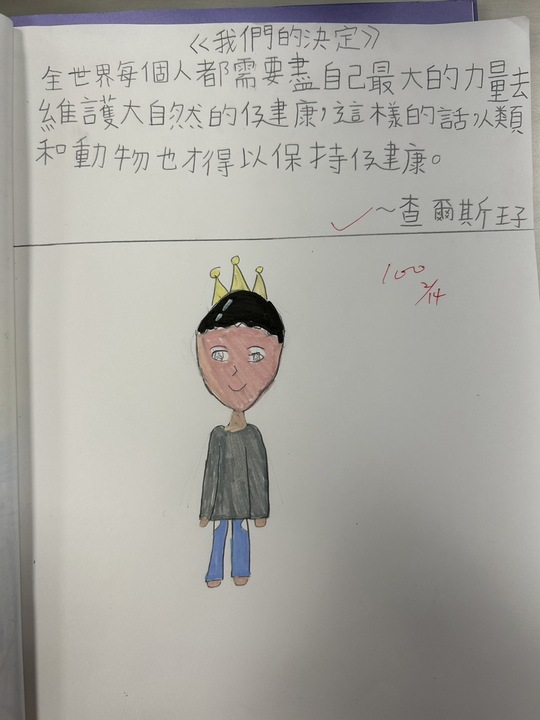 《我們的決定》
全世界每個人都需要盡自己最大的力量去
維護大自然的健康,這樣的話人類
和動物也才得以保持健康。
~查爾斯王子
100
2/14